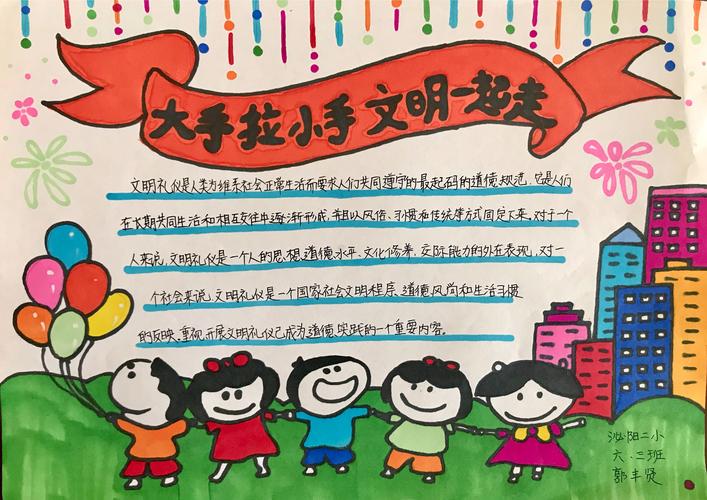 大手拉小手 文明一起走
文明礼仪是人类为维系社会正常生活而要求人们共同遵守的最起码的道德规范，它是人们
在长期共同生活和相互交往中逐渐形成，并且以风俗、习惯和传统等方式固定下来，对于一个
人来说，文明礼仪是一个人的思想道德水平、文化修养、交际能力的外在表现，对一
个社会来说，文明礼仪是一个国家社会文明程序、道德风尚和生活习惯
的反映，重视、开展文明礼仪已成为道德实践的一个重要内容。
泌阳二小
六．三班
郭丰贤